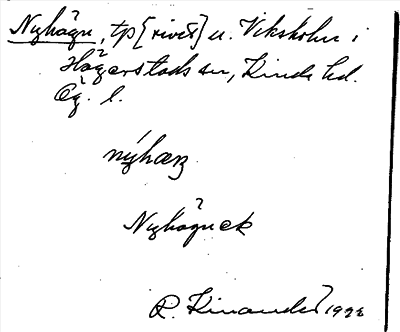 Nyhagn, tp [rivet] u. Viksholm i
Hägerstads sn, Kinda hd.
Ög. l.
nýhaŋ
Nyhagnek
R. Kinander 1922